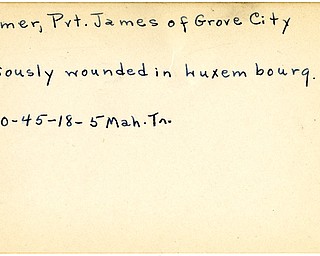 mer, Pvt. James of Grove City
ously wounded in Luxembourg.
0-45-18-5 Mah. Tr.